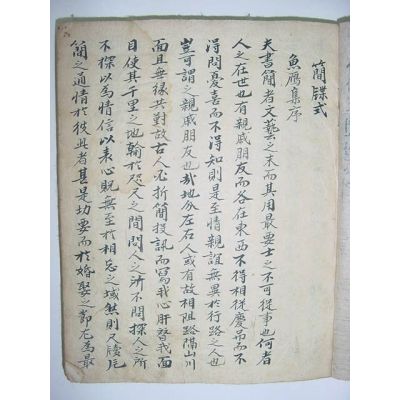 簡牒式
魚鴈集序
夫書簡者文藝之末而其用最要士之不可從事也何者
人之在世也有親戚朋友而各在東西不得相從慶吊而不
得問憂喜而不得知則是至情親誼無異於行路之人也
豈可謂之親戚朋友也哉地分左右人或有故相阻路隔山川
而且無緣共對故古人必折簡投訊而寫我心肝替我面
目使其千里之地輸於咫尺之間問人之所不問探人之所
不探以為情信以表心貺無至於相忘之域然則尺牘
簡之通情於彼此者甚是切要而於婚娶之節尤為最